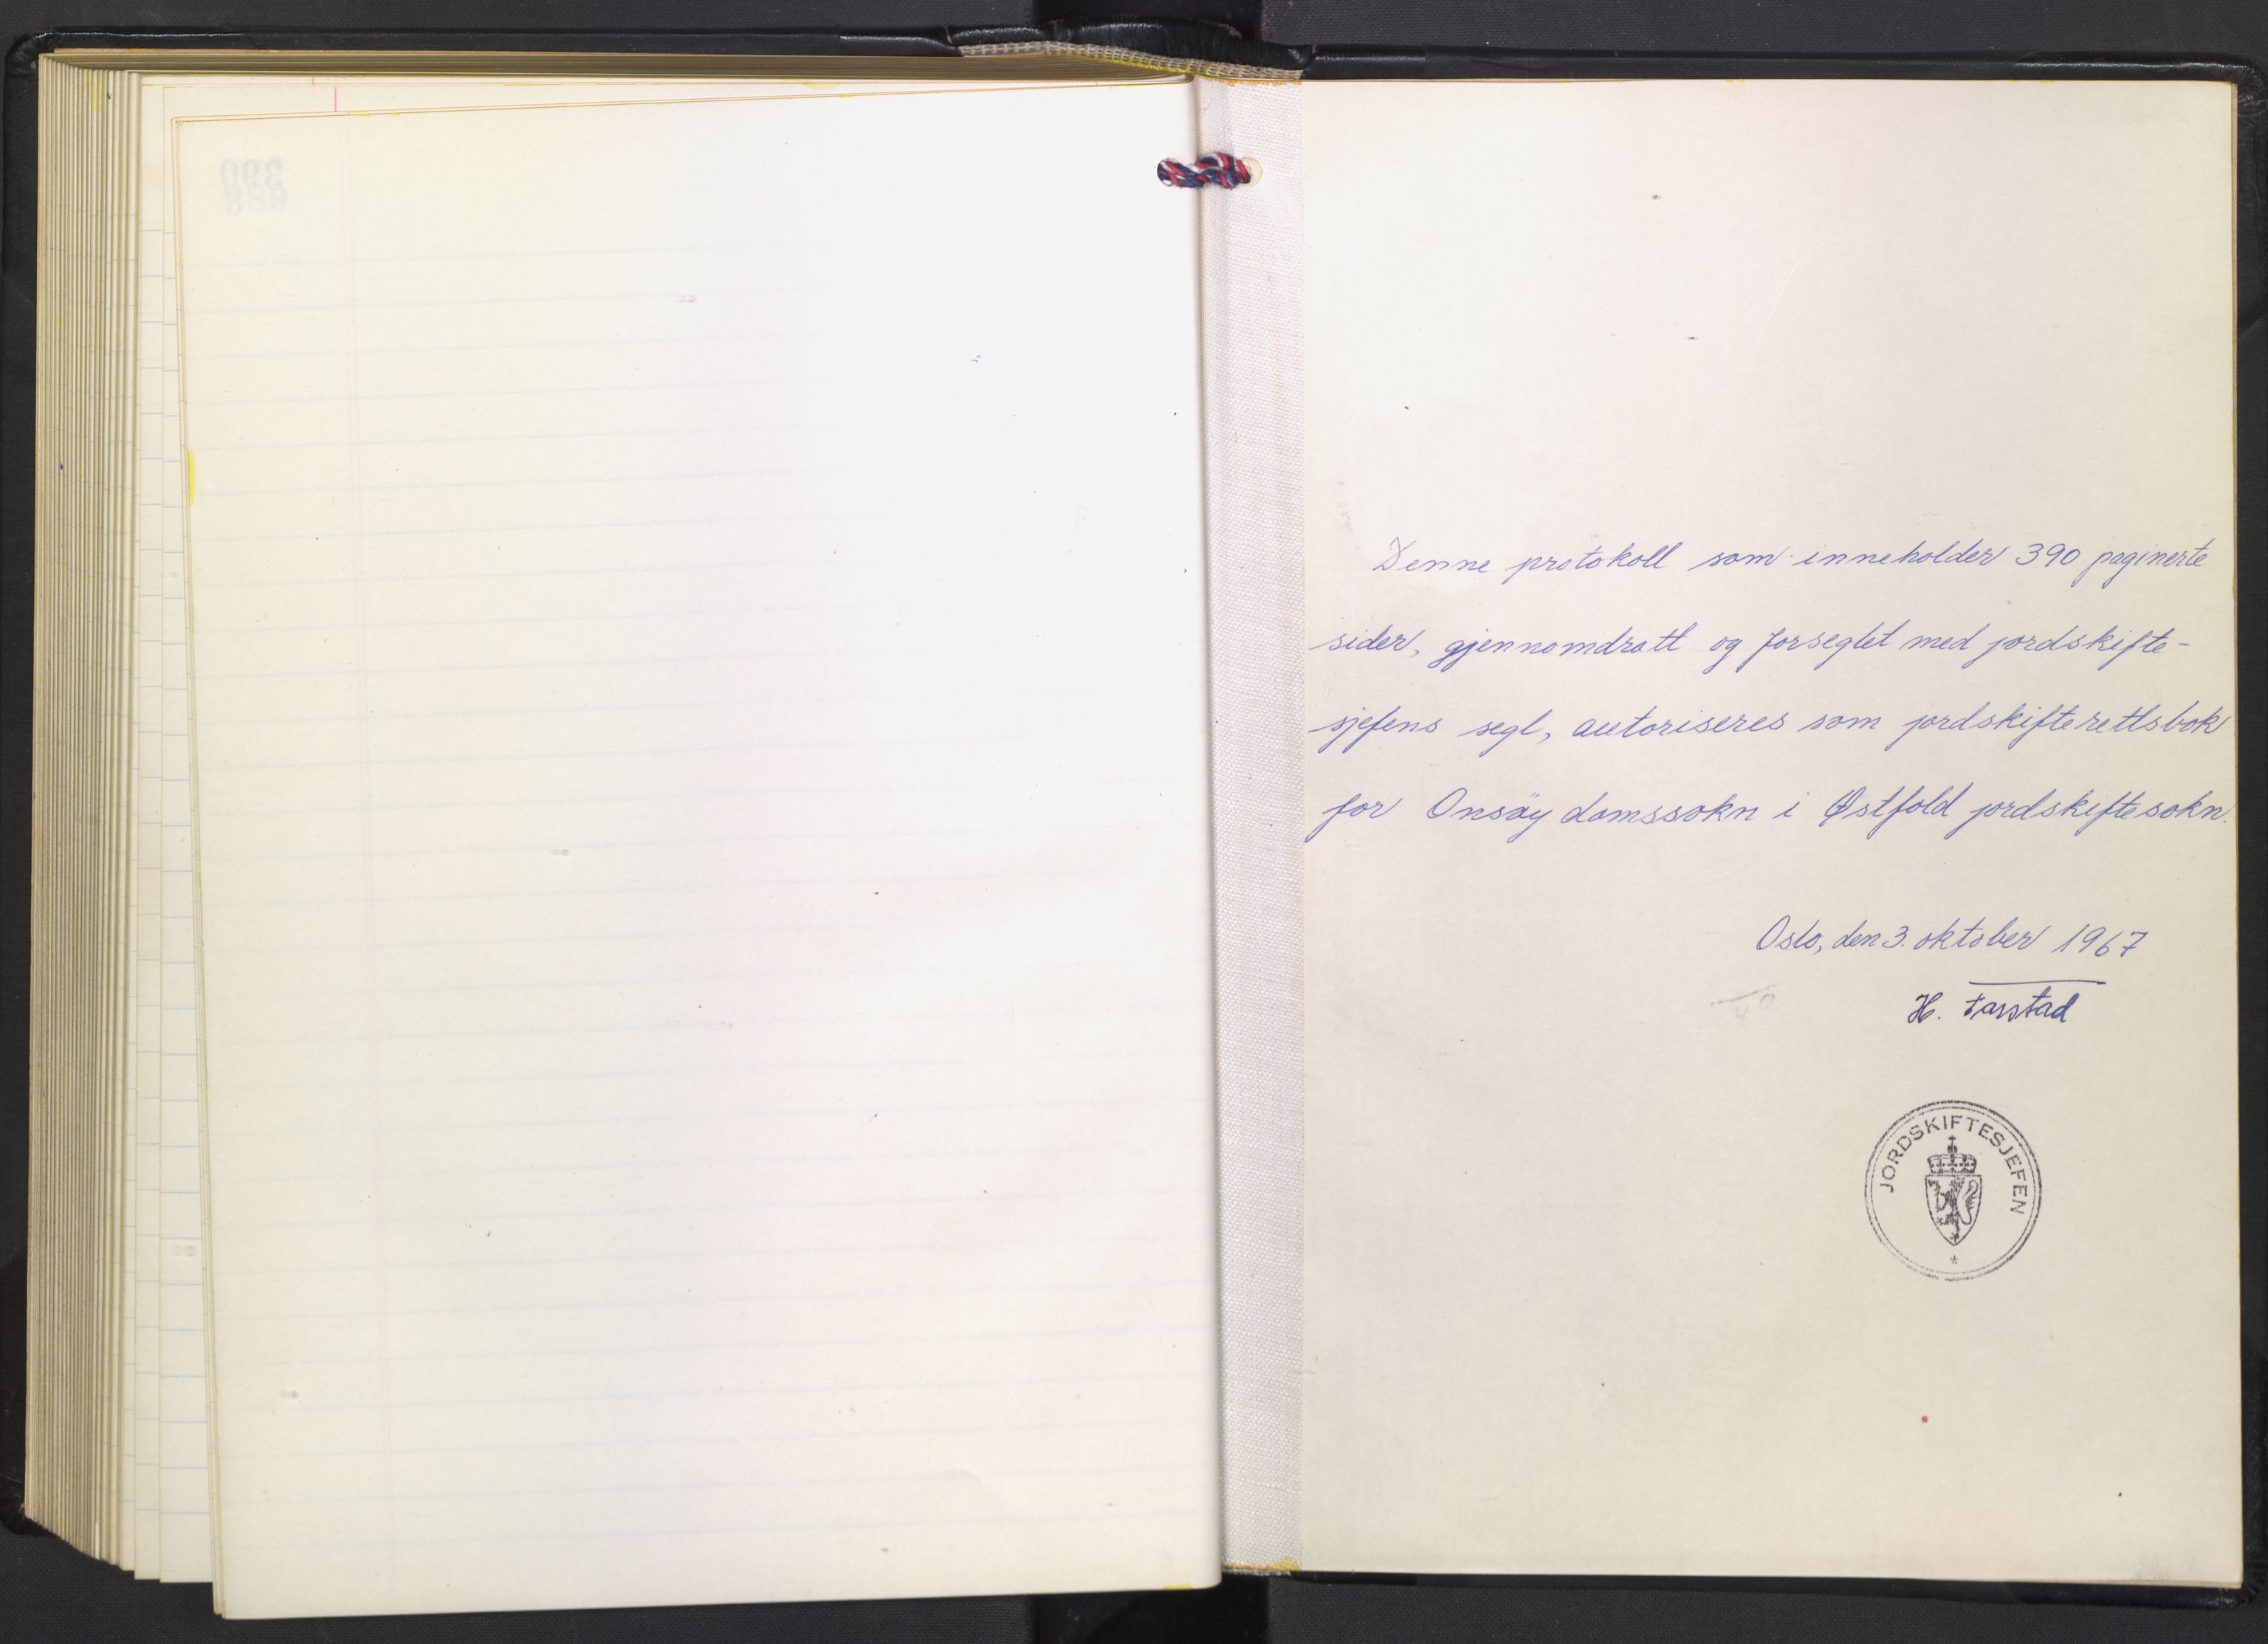 Denne protokoll som inneholder 390 paginerte
sider, gjennomdratt og forseglet med jordskifte-
sjefens segl, autoriseres som jordskifterettsbok
for Onsøy domssokn i Østfold jordskiftesokn.
Oslo, den 3. oktober 1967
H. Farstad
JORDSKIFTESJEFEN